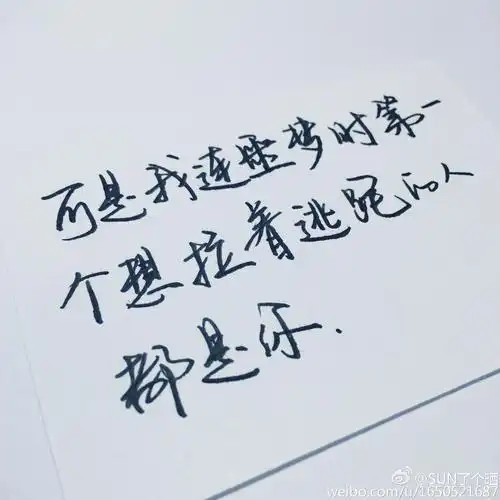 可是我连噩梦时第一
个想拉着逃跑的人
都是你.
@SUN了个洒
weibo.com/u/1650521687